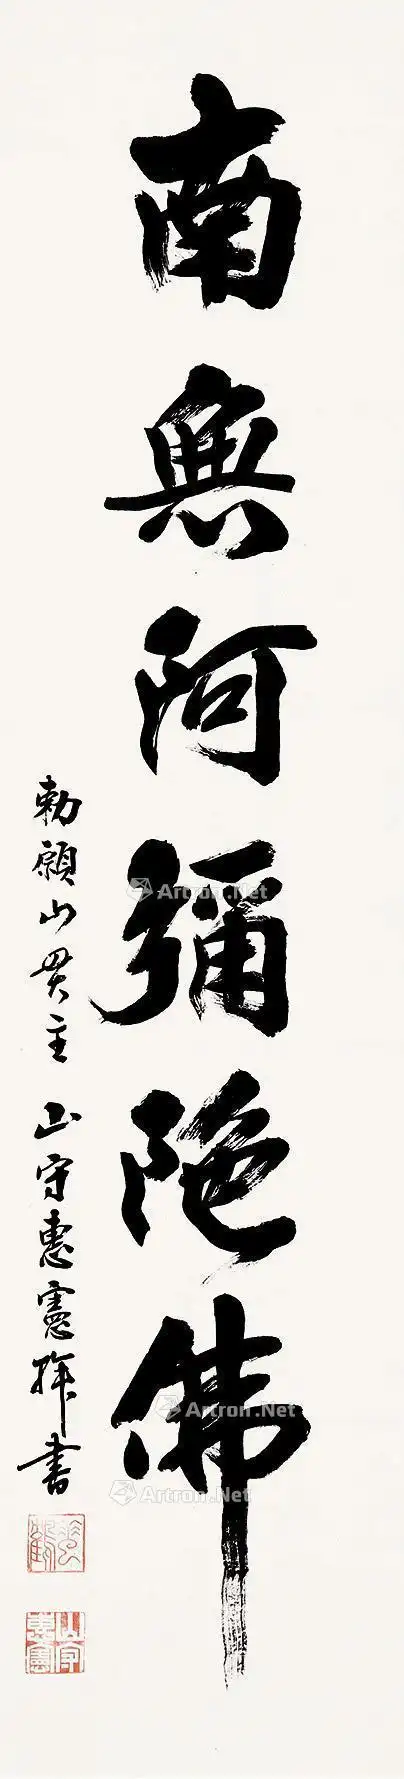 南無阿彌陁佛
勅願山貫主 山守惠憲拜書
山守惠憲
Artron.Net
Artron.Net
Artron.Net